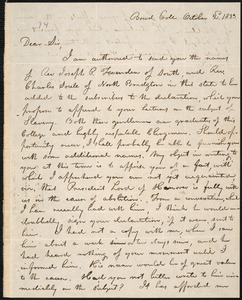 Bowd. Coll. October 5th 1833
Dear Sir,
I am authorized to send you the names
of Rev Joseph P. Fessenden of South, and Rev
Charles Soule of North Bridgton in this state to be
added to the subscribers to the declaration, which you
propose to append to your letters on the subject of
Slavery. Both these gentlemen are graduates of this
College and highly respectable Clergymen. Should op-
portunity occur, I shall probably be able to furnish you
with some additional names. My object in writing to
you at this time is to apprize you of a fact with
which I apprehend you are not yet acquainted
viz. that President Lord of Hanover is fully with
us in the cause of abolition. From a conversation which
I have recently had with him I think he would un-
doubtedly sign your declaration, if it were sent to
him. I had not a copy with me, when I saw
him about a week since, and he
had heard nothing of your movement until I
informed him. His name would be of great value
to the cause. Had you not better write to him im-
mediately on the subject? It has afforded me